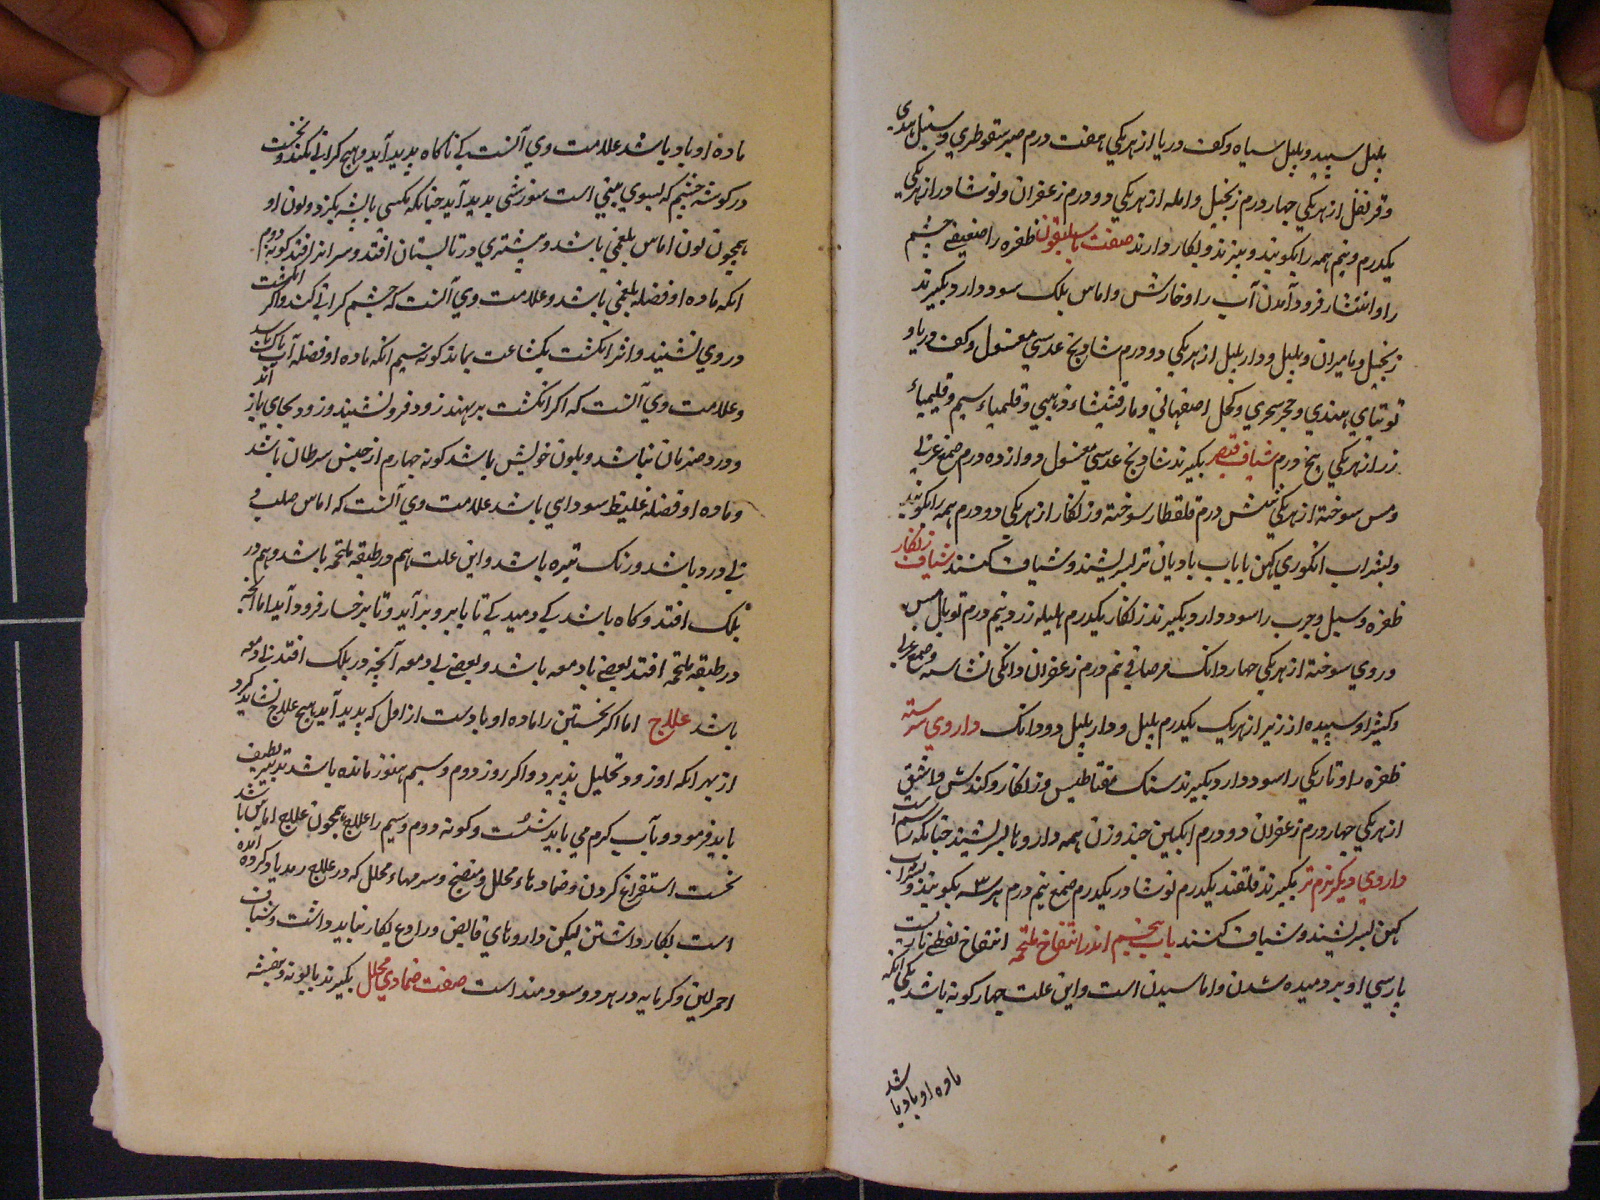 پلپل سپید و پلپل سیاه و کف دریا از هریکی هفت درم صبر سقوطری و سنبل هندی
و قرنفل از هریکی چهار درم زنجبیل و امله از هریکی دو درم زعفران و نوشادر از هریکی
یکدرم و نیم همه را بکوبند و ببیزند و بکار دارند صفت باسلیقون ظفره را ضعیفی چشم
را و انتشار فرود آمدن آب را و خارش و اماس پلک سود دارد بکیرند
زنجبیل و مامیران و پلپل و دارپلپل از هریکی دو درم شادنج عدسی مغسول و کف دریا و
توتیای هندی و حجر سحری و کحل اصفهانی و مارقشیثاء ذهبی و قلیمیاء سیم و قلیمیاء
زر از هریکی پنج درم شیاف قیصر بکیرند شادنج عدسی مغسول دوازده درم صمغ عربی
و مس سوخته از هریکی شش درم قلقطار سوخته و زنکار از هریکی دو درم همه را بکوبند
و بشراب انکوری کهن یا باب بادیان تر بسرشند و شیاف کنند شیاف زنکار
ظفره و سبل و جرب را سود دارد بکیرند زنکار یکدرم هلیله زرد نیم درم توبال مس
و روی سوخته از هریکی چهار دانک مرصافی نیم درم زعفران دانکی نشاسته و صمغ عربی
و کثیرا و سپیده ارزیز از هریک یکدرم پلپل و دارپلپل دو دانک داروی سرشته
ظفره را و تاریکی را سود دارد بکیرند سنک مقناطیس و زنکار و کندش و اشق
از هریکی چهار درم زعفران دو درم انکبین چند وزن همه داروها بسرشند چنانکه رسم است
داروی دیکر نرم تر بکیرند قلقند یکدرم نوشادر یکدرم صمغ نیم درم هر سه بکوبند و بشراب
کهن بسرشند و شیاف کنند باب پنجم اندر انتفاخ ملتحمه انتفاخ لفظی تازیست
پارسی او بردمیده شدن و اماسیدن است و این علت چهار کونه باشد یکی انکه
ماده او باد باشد
ماده او باد باشد علامت وی آنست کی ناکاه پدید آید و هیچ کرانی نکند و نخست
در کوشه چشم که بسوی بینی است سوزشی پدید آید چنانکه مکسی یا پشه بکزد و لون او
همچون لون اماس بلغمی باشد و بیشتری در تابستان افتد و سرانرا افتد کونه دوم
انکه ماده او فضله بلغمی باشد و علامت وی آنست که چشم کرانی کند و اکر انکشت
در وی نشیند و اثر انکشت یکساعت بماند کونه سیم انکه ماده او فضله آب باشد
و علامت وی آنست که اکر انکشت بر نهند زود فرو نشیند و زود بجای باز آید
و درد ضربان نباشد و بلون خویش باشد کونه چهارم از جنس سرطان باشد
و ماده او فضله غلیظ سوداهی باشد علامت وی آنست که اماس صلب و
بی درد باشد و رنک تیره باشد و این علت هم در طبقه ملتحمه باشد و هم در
پلک افتد و کاه باشد کی دمیدکی تا بابرو بر آید و تا برخسار فرود آید اما انچه
در طبقه ملتحمه افتد بعضی با دمعه باشد و بعضی بی دمعه آنچه در پلک افتد بی دمعه
باشد علاج اما اکر نخستین را ماده او بادست از اول که پدید آید هیچ علاج نشاید کرد
از بهر انکه او زود تحلیل پذیرد و اکر روز دوم و سیم هنوز مانده باشد تدبیر لطیف
باید فرمود و بآب کرم می باید شست و کونه دوم و سیم را علاج همچون علاج اماس باشد
نخست استفراغ کردن و ضمادهاء محلل و منضج و سرمهاء محلل که در علاج رمد یاد کرده آمده
است بکار داشتن لیکن داروهای قابض و رادع بکار نباید داشت و شیاف
احمر لین و کرمابه در هر دو سودمند است صفت ضمادی محلل بکیرند بابونه و بنفشه